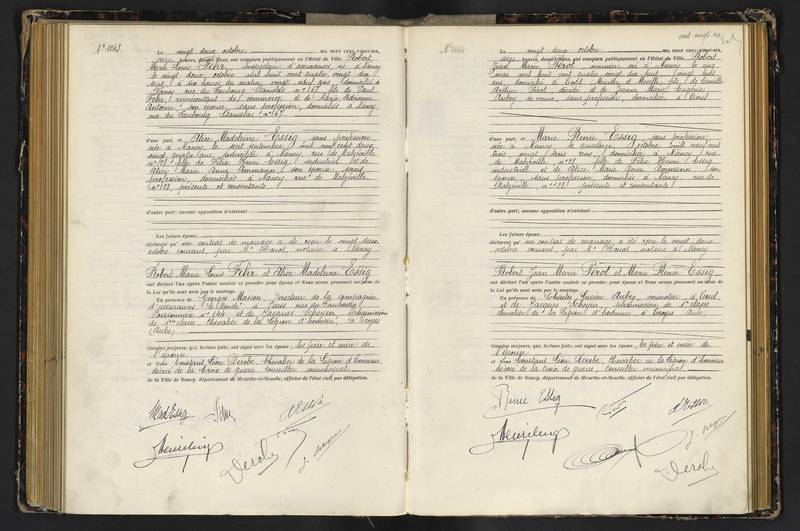 N° 1043
Le vingt deux octobre MIL NEUF CENT VINGT-SIX,
seize heures, devant Nous, ont comparu publiquement en l'Hôtel de Ville Robert
Marie Louis Fehr, d'assurances, né à Nancy
le vingt deux octobre mil huit cent quatre vingt dix
sept à six heures du matin, vingt neuf ans, domicilié à
Nancy, rue du Faubourg Stanislas n° 67, fils de Paul
Fehr, représentant de commerce et de Marie Adrienne
Antoine, son épouse, sans profession, domiciliés à Nancy
rue du Faubourg Stanislas n° 67
d'une part, et Alice Madeleine Essig sans profession,
née à Nancy, le sept septembre mil neuf cent deux,
vingt quatre ans, domiciliée à Nancy, rue de Malzéville
fille de Félix Henri Essig industriel et de
Alice Marie Anna Ammann son épouse, sans
profession, domiciliés à Nancy rue de Malzéville
présents et consentants
d'autre part; aucune opposition n'existant
Les futurs époux
déclarent qu'un contrat de mariage a été reçu le vingt deux
octobre courant, par Me Houot, notaire à Nancy
Robert Marie Louis Fehr et Alice Madeleine Essig
ont déclaré l'un après l'autre vouloir se prendre pour époux et Nous avons prononcé au nom
de la Loi qu'ils sont unis par le mariage.
En présence de Georges Masson, Directeur de la compagnie
d'assurances à Paris rue du Faubourg
Poissonnière et de Jacques
de 1ère classe, Chevalier de la Légion d'honneur, à Troyes
(Aube)
témoins majeurs, qui, lecture faite, ont signé avec les époux, les père et mère de
l'épouse
et Nous Constant Léon Derobe Chevalier de la Légion d'honneur
décoré de la Croix de guerre, conseiller municipal
de la Ville de Nancy, département de Meurthe-et-Moselle, officier de l'état civil par délégation.
Mad Essig
Derobe
N° 1044
Le vingt deux octobre MIL NEUF CENT VINGT-SIX,
seize heures, devant Nous, ont comparu publiquement en l'Hôtel de Ville Robert
Jean Marie Pérot né à Nancy le six
mai mil huit cent quatre vingt dix huit, vingt huit
ans, domicilié à Toul Meurthe et Moselle, fils de Camille
Arthur Pérot décédé et de Jeanne Marie Eugénie
Aubry sa veuve, sans profession, domiciliée à Toul
d'une part, et Marie Renée Essig, sans profession,
née à Nancy, le quatorze octobre mil neuf cent
trois vingt trois ans, domiciliée à Nancy rue
de Malzéville fille de Félix Henri Essig
industriel et de Alice Marie Anna Ammann son
épouse, sans profession domiciliés à Nancy rue de
Malzéville présents et consentants
d'autre part; aucune opposition n'existant
Les futurs époux
déclarent qu'un contrat de mariage a été reçu le vingt deux
octobre courant, par Me Houot, notaire à Nancy
Robert Jean Marie Pérot et Marie Renée Essig
ont déclaré l'un après l'autre vouloir se prendre pour époux et Nous avons prononcé au nom
de la Loi qu'ils sont unis par le mariage.
En présence de Charles Lucien Aubry, à Toul
et de Jacques de 1ère classe
chevalier de la Légion d'honneur à Troyes Aube,
témoins majeurs, qui, lecture faite, ont signé avec les époux, les père et mère de
l'épouse
et Nous Constant Léon Derobe, Chevalier de la Légion d'honneur
décoré de la Croix de guerre, conseiller municipal
de la Ville de Nancy, département de Meurthe-et-Moselle, officier de l'état civil par délégation.
Renée Essig
Derobe